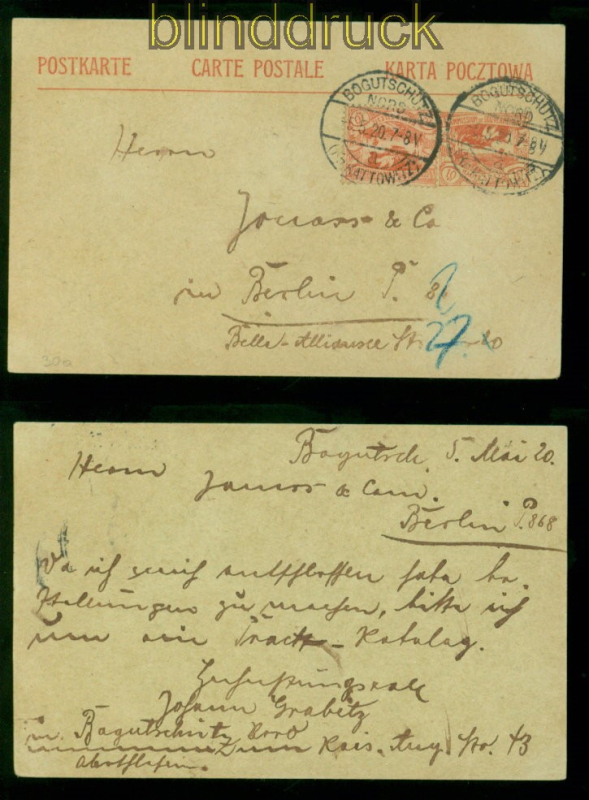 blinddruck
POSTKARTE CARTE POSTALE KARTA POCZTOWA
BOGUTSCHÜTZ
NORD
20.7-8V
(KR. KATTOWITZ)
BOGUTSCHÜTZ
NORD
7-8V
10
Herrn
Jonass & Co
in Berlin P.
Belle-Alliance Str.
27.
30a
Bogutsch. 5. Mai 20.
Herrn
Jonass & Com.
Berlin P. 868
Da ich mich entschlossen habe be-
stellungen zu machen, bitte ich
um ein Katalog.
Johann Grabitz
in Bogutschütz Nord
Kais. Aug. Str. 43
Oberschlesien.